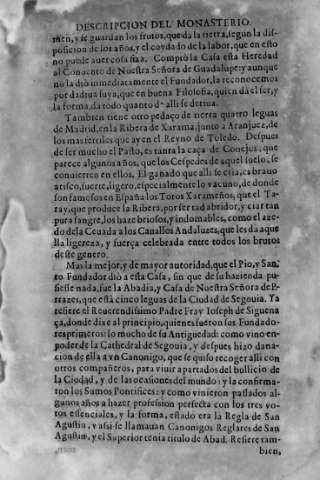 DESCRIPCION DEL MONASTERIO.
nen, y se guardan los frutos, queda la tierra, segun la dis-
posicion de los años, y el cuydado de la labor, que en esto
no puede auer cosa fixa. Comprò la Casa esta Heredad
al Conuento de Nuestra Señora de Guadalupe: y aunque
no la diò immediatamente el Fundador, la reconocemos
por dadiua suya, que en buena Filosofia, quien dà el ser, y
la forma, da todo quanto de alli se deriua.
Tambien tiene otro pedaço de tierra quatro leguas
de Madrid, en la Ribera de Xarama, junto à Aranjuez, de
los mas fertiles que ay en el Reyno de Toledo. Despues
de ser mucho el Pasto, es tanta la caça de Conejos, que
parece algunos años, que los Cespedes de aquel suelo, se
conuierten en ellos. El ganado que alli se cria, es brauo
arisco, fuerte, ligero, especialmente lo vacuno, de donde
son famosos en España los Toros Xarameños, que el Ta-
ray, que produce la Ribera, por ser tad abridor, y criar tan
pura sangre, los haze briosos, y indomables, como el aze-
do de la Ceuada a los Cauallos Andaluzes, que les da aque
lla ligereza, y fuerça celebrada entre todos los brutos
deste genero.
Mas la mejor, y de mayor autoridad, que el Pio, y San-
to Fundador diò à esta Casa, sin que de su hazienda pu-
siesse nada, fue la Abadia, y Casa de Nuestra Señora de P-
rrazes, que està cinco leguas de la Ciudad de Segouia. Ya
refiere el Reuerendissimo Padre Fray Ioseph de Siguen
ça, donde dize al principio, quienes fueron sus Fundado-
res primeros: lo mucho de su Antiguedad: como vino en
poder de la Cathedral de Segouia, y despues hizo dona-
cion de ella a vn Canonigo, que se quiso recoger alli con
otros compañeros, para viuir apartados del bullicio de
la Ciudad, y de las ocasiones del mundo: y la confirma-
ron los Sumos Pontifices: y como vinieron passados al-
gunos años a hazer profession perfecta con los tres vo-
tos essenciales, y la forma, estado era la Regla de San
Agustin, y assi se llamauan Canonigos Reglares de San
Agustin, y el Superior tenia titulo de Abad. Refiere tam-
bien,